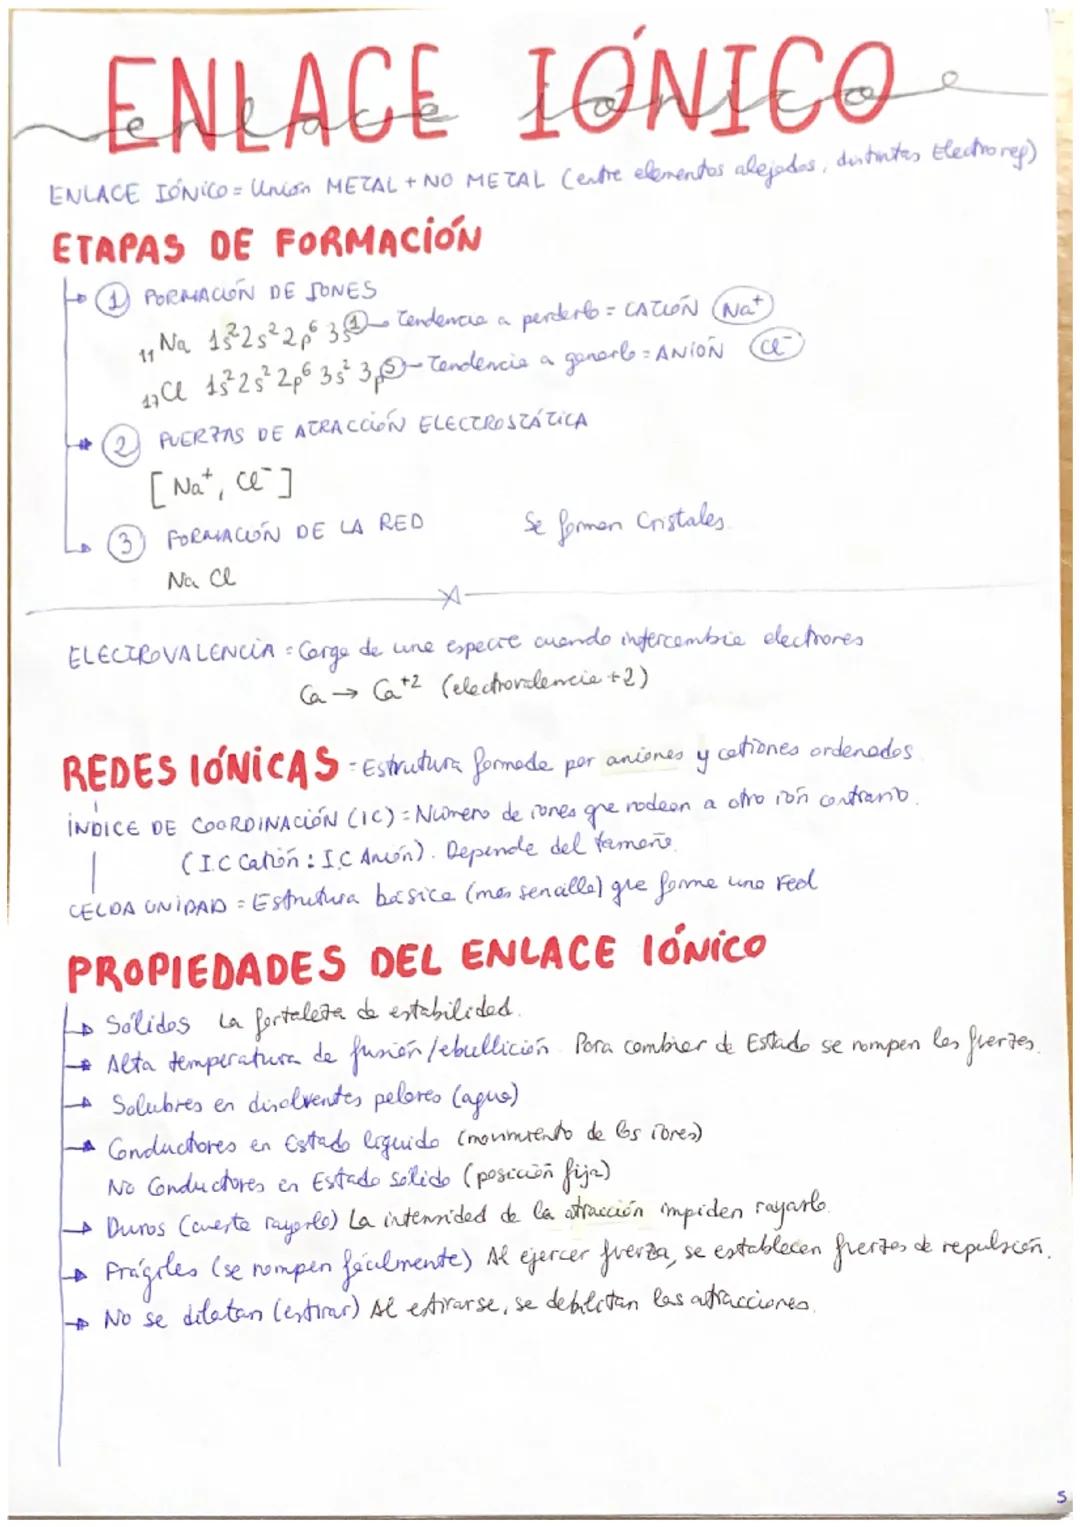 ENLACE IÓNICO
enlace iónico
ENLACE IÓNICO = Unión METAL + NO METAL (entre elementos alejados, distintas Electroneg)
ETAPAS DE FORMACIÓN
① FORMACIÓN DE IONES
₁₁Na 1s² 2s² 2p⁶ 3s① Tendencia a perderlo = CATIÓN Na⁺
₁₇Cl 1s² 2s² 2p⁶ 3s² 3p⑤ - Tendencia a ganarlo = ANIÓN Cl⁻
② FUERZAS DE ATRACCIÓN ELECTROSTÁTICA
[Na⁺, Cl⁻]
③ FORMACIÓN DE LA RED Se forman Cristales.
Na Cl
ELECTROVALENCIA = Carga de una especie cuando intercambia electrones
Ca → Ca⁺² (electrovalencia +2)
REDES IÓNICAS = Estrutura formada por aniones y cationes ordenados.
ÍNDICE DE COORDINACIÓN (IC) = Número de iones que rodean a otro ión contrario.
(I.C Catión : I.C Anión). Depende del tamaño.
CELDA UNIDAD = Estrutura básica (mas sencilla) que forma una red
PROPIEDADES DEL ENLACE IÓNICO
Sólidos La fortaleza da estabilidad.
Alta temperatura de fusión/ebullición. Para cambiar de Estado se rompen las fuerzas.
Solubres en disolventes polares (agua)
Conductores en Estado líquido (movimiento de los iones)
No Conductores en Estado sólido (posición fija)
Duros (cuesta rayarlo) La intensidad de la atracción impiden rayarlo.
Frágiles (se rompen fácilmente) Al ejercer fuerza, se establecen fuerzas de repulsión.
No se dilatan (estirar) Al estirarse, se debilitan las atracciones.
5